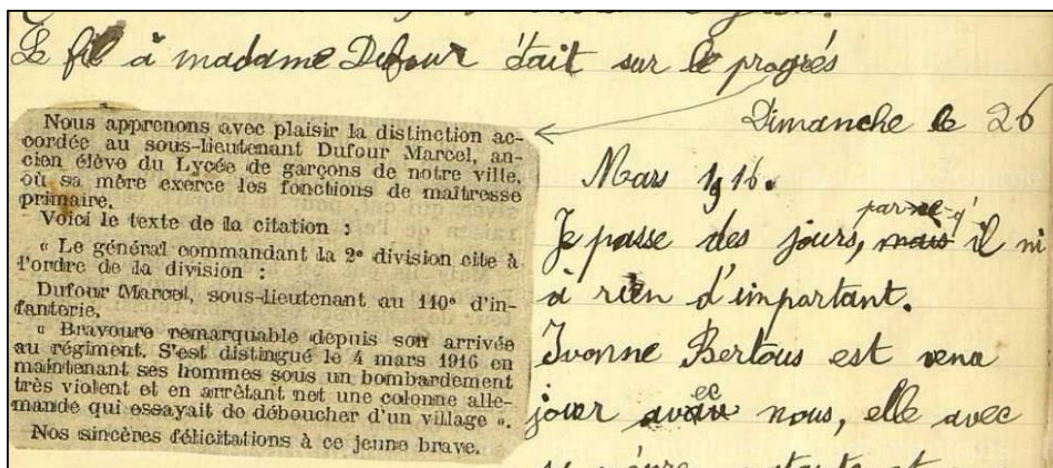 Le fil à madame Dufour était sur le progrés
Nous apprenons avec plaisir la distinction ac-
cordée au sous-lieutenant Dufour Marcel, an-
cien élève du Lycée de garçons de notre ville,
où sa mère exerce les fonctions de maîtresse
primaire.
Voici le texte de la citation :
« Le général commandant la 2e division cite à
l'ordre de la division :
Dufour Marcel, sous-lieutenant au 110e d'in-
fanterie.
« Bravoure remarquable depuis son arrivée
au régiment. S'est distingué le 4 mars 1916 en
maintenant ses hommes sous un bombardement
très violent et en arrêtant net une colonne alle-
mande qui essayait de déboucher d'un village ».
Nos sincères félicitations à ce jeune brave.
Dimanche le 26
Mars 1916.
Je passe des jours, mais il ni
à rien d'important.
Ivonne Bertous est venu
jouer avec nous, elle avec